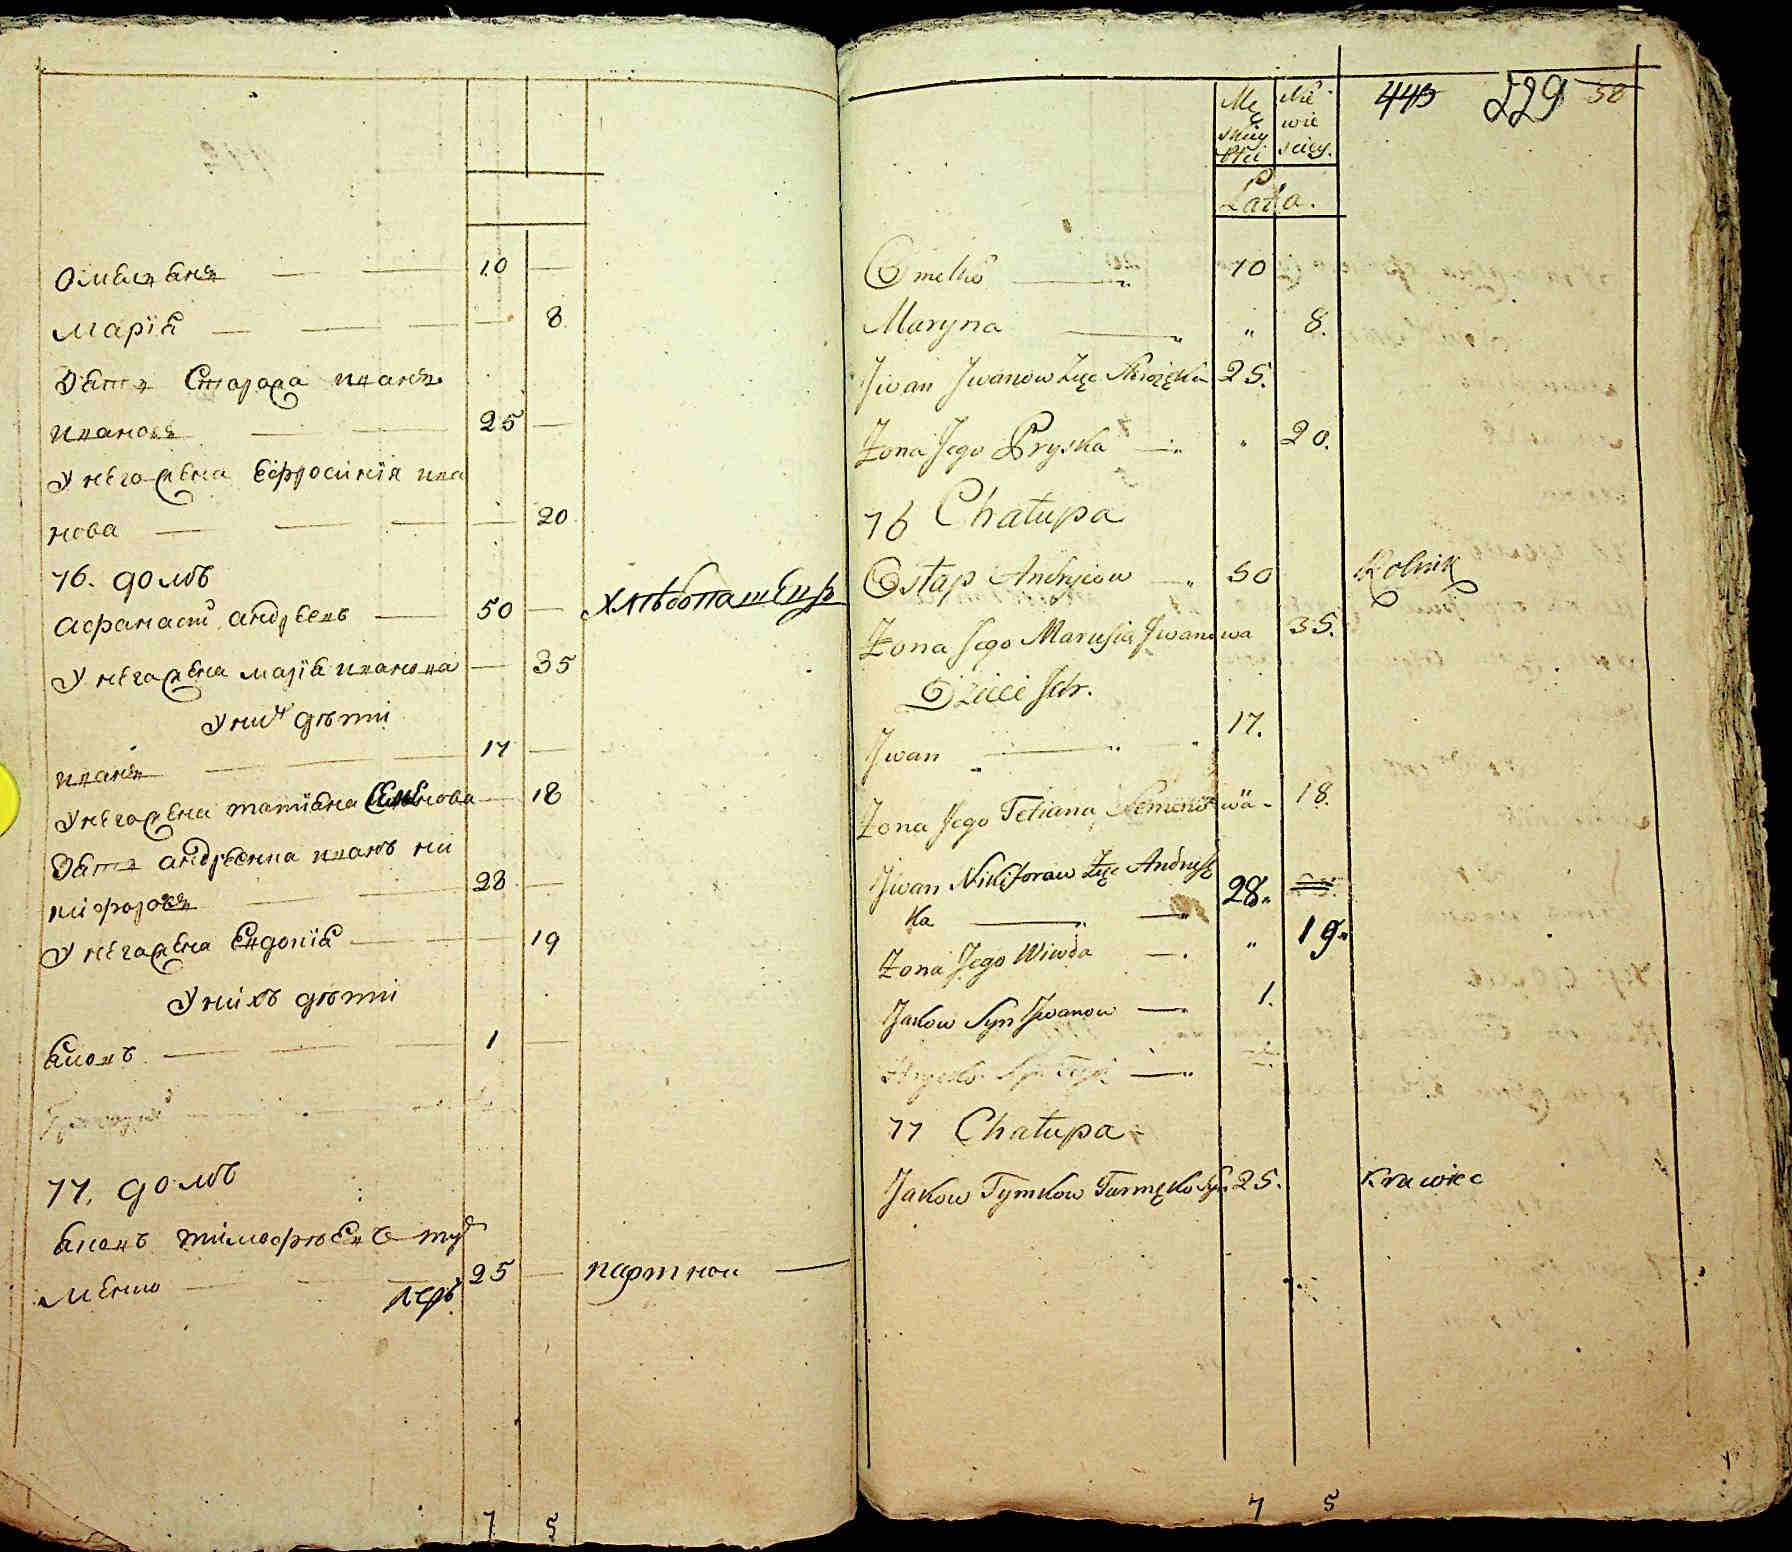 Омелѧнъ — — 10 —
Марїѧ — — — — 8
Зѧть Сторожа иванъ
ивановъ — — 25 —
У него жена Ефросинїя ива
нова — — — — 20
76. домъ
Афанасiй андреевъ — 50 — хлѣбопашецъ
У него жена марїя иванова — 35
У них дѣти
иванъ — — — 17 —
У него жена татїяна Семенова — 18
Зѧть андреенка иванъ ни
кифоровъ — — 28 —
У него жена Евдокїя — — 19
У нихъ дѣти
Яковъ — — — 1 —
77. домъ
Яковъ тимофѣевъ
25 — портной —
7 5
Mę skiey Płci Nie wie sciey. 443 229 58
Lata.
Omelko — 10
Maryna — „ 8.
Jwan Jwanow Zięć 25.
Zona Jego Pryska — „ 20.
76 Chałupa
Ostap Andryiow — 50 Rolnik
Zona Jego Marusia Jwanowa 35.
Dzieci Ich.
Jwan — 17.
Zona Jego Tetiana Semenowa - 18.
Jwan Nikiforow Zięć Andrysz
ka — 28.
Zona Jego Wiwda — „ 19
Jakow Syn Jwanow — 1.
77 Chałupa
Jakow Tymkow Syn 25. Krawiec
7 5